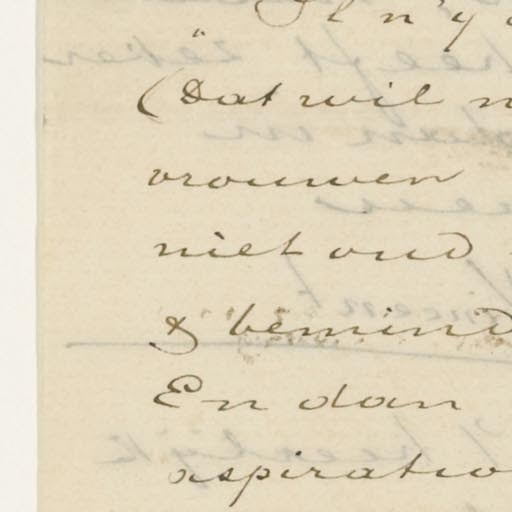 " Il n'y a
(Dat wil n
vrouwen
niet oud
& bemind
En dan
aspiratio